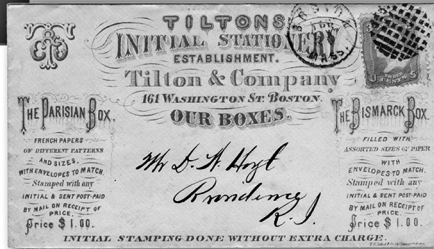 TILTONS
INITIAL STATIONERY
ESTABLISHMENT.
Tilton & Company
161 WASHINGTON ST. BOSTON.
OUR BOXES.
THE PARISIAN BOX.
FRENCH PAPERS
OF DIFFERENT PATTERNS
AND SIZES,
WITH ENVELOPES TO MATCH.
Stamped with any
INITIAL & SENT POST-PAID
BY MAIL ON RECEIPT OF
PRICE.
Price $1.00.
Mr D. H. Hoyt
Providence
R. I
THE BISMARCK BOX.
FILLED WITH
ASSORTED SIZES OF PAPER
WITH
ENVELOPES TO MATCH.
Stamped with any
INITIAL & SENT POST-PAID
BY MAIL ON RECEIPT OF
PRICE.
Price $1.00.
INITIAL STAMPING DONE WITHOUT EXTRA CHARGE.
MASS.
CENTS